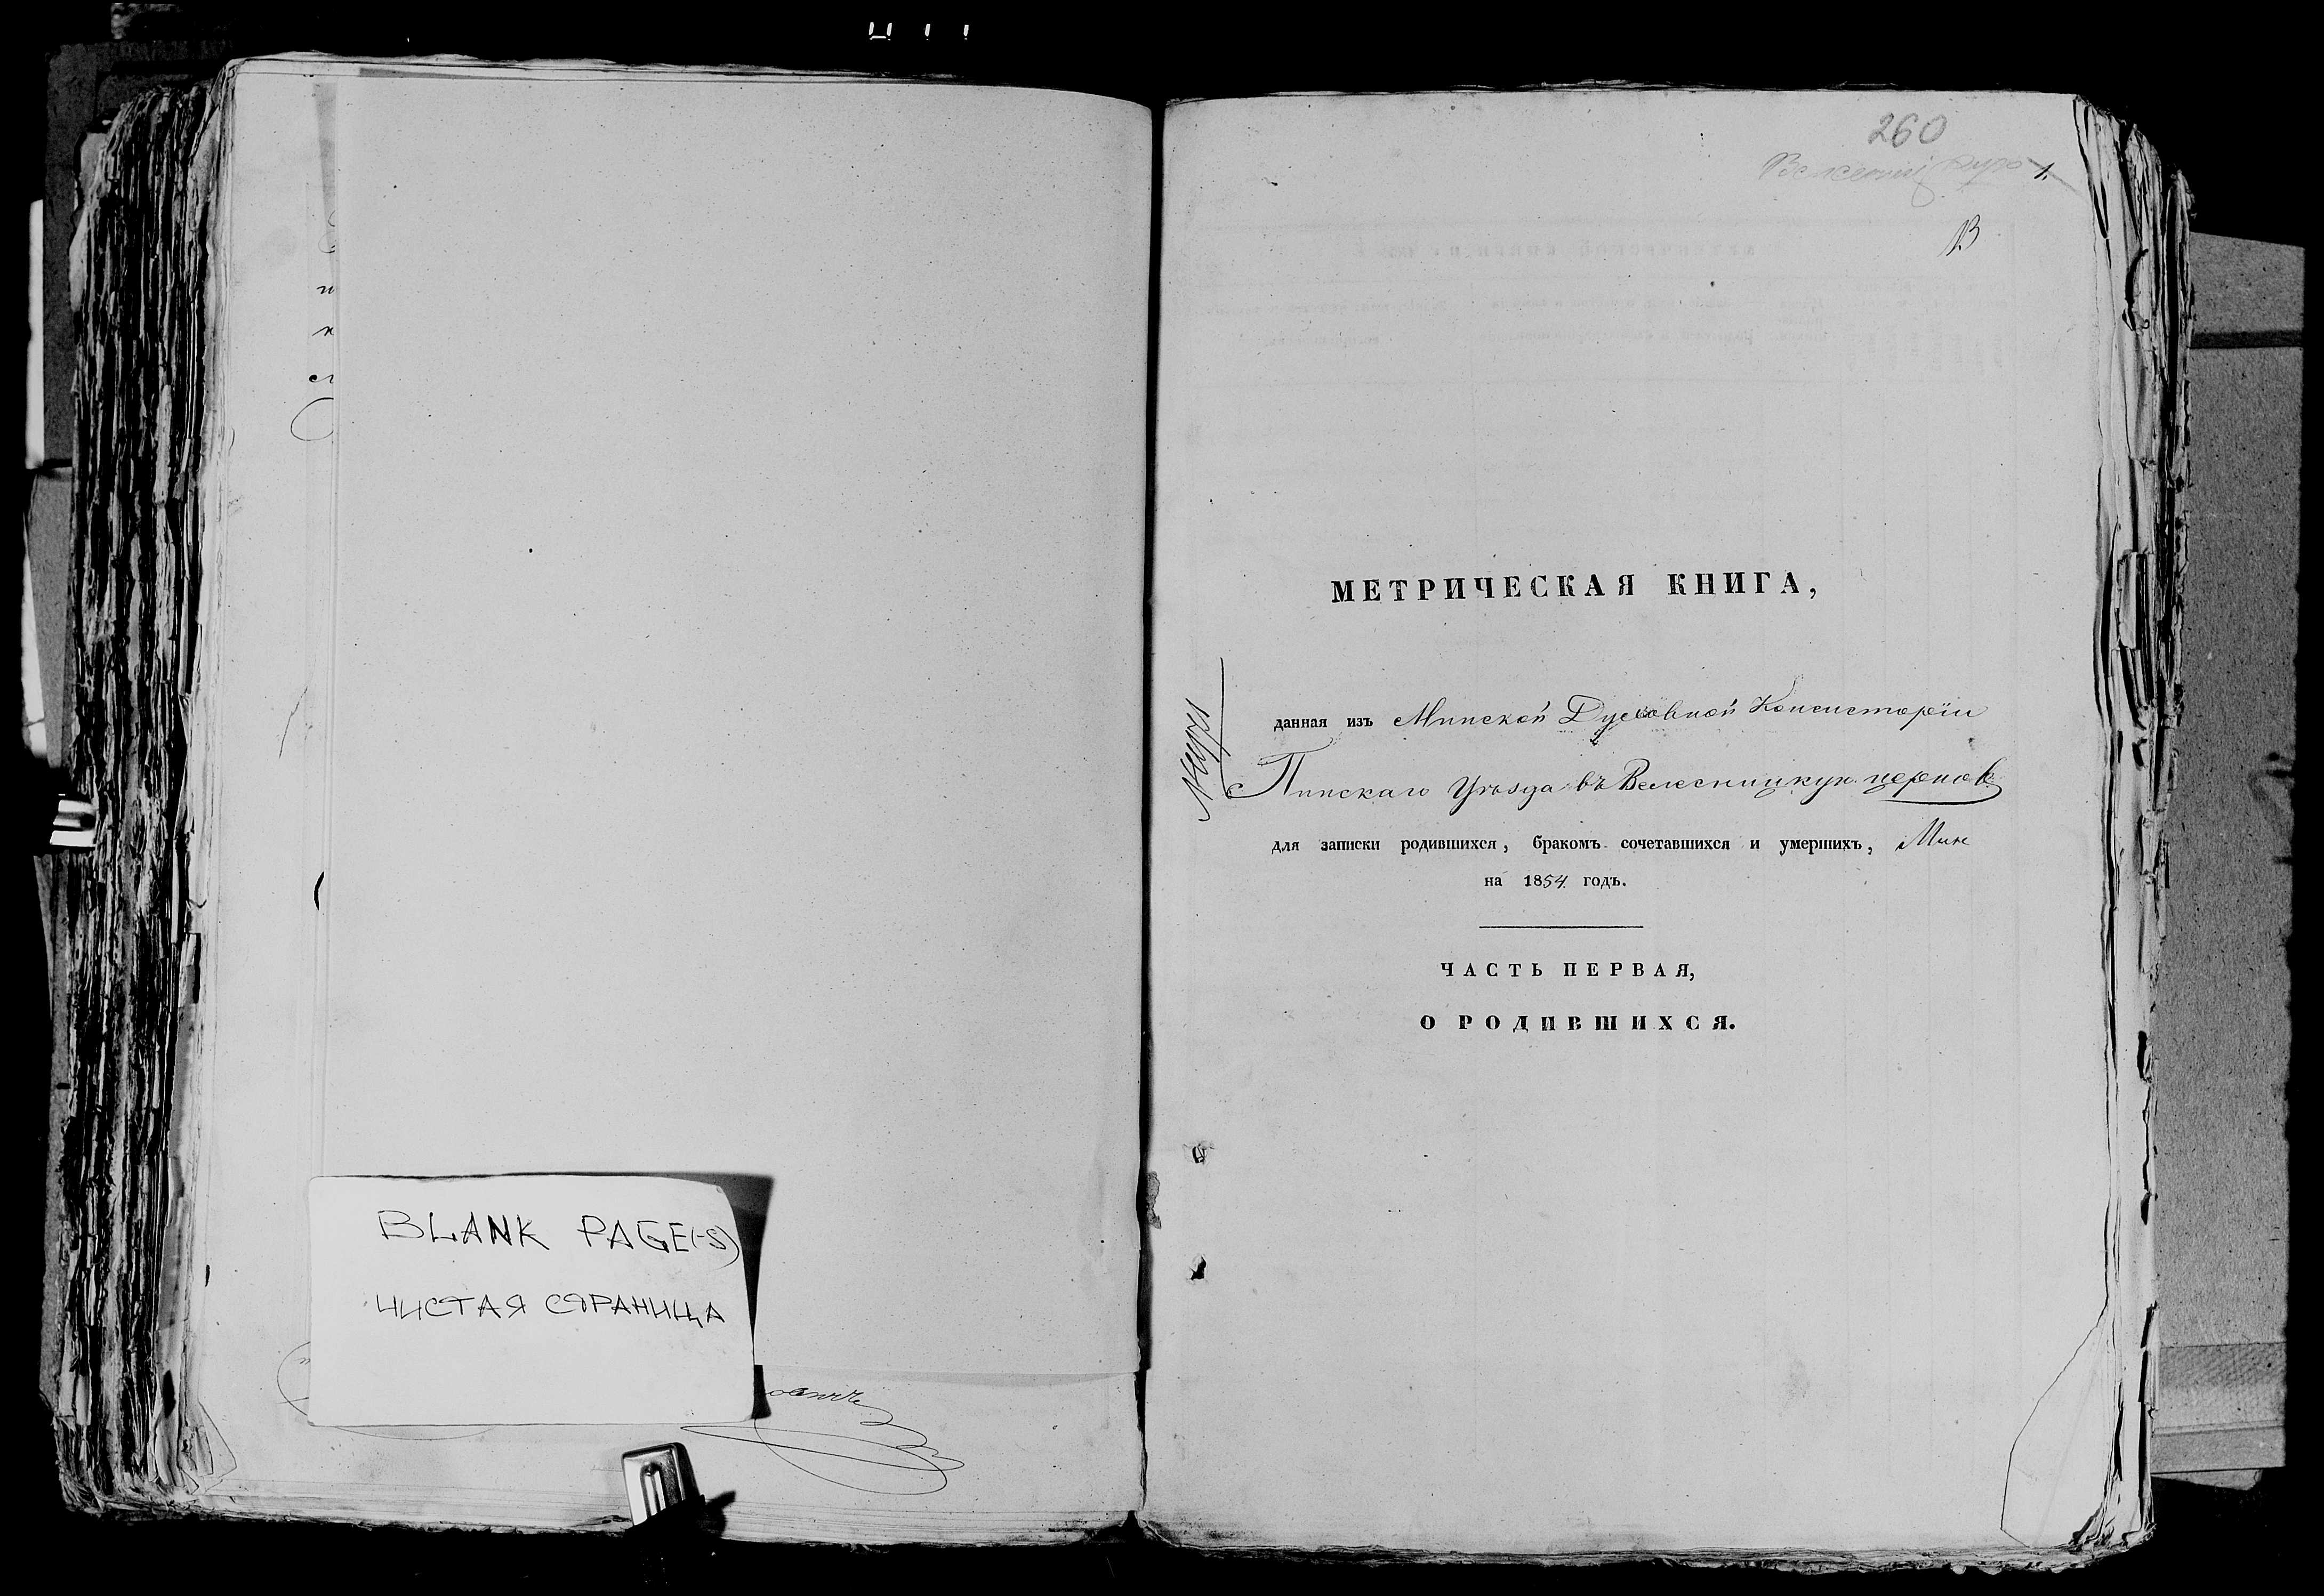 BLANK PAGE(-S)
ЧИСТАЯ СТРАНИЦА
260
1.
МЕТРИЧЕСКАЯ КНИГА,
данная изъ Минской Духовной Консисторіи
Пинскаго Уѣзда въ Велесницкую церковь
для записки родившихся, бракомъ сочетавшихся и умершихъ,
на 1854 годъ.
ЧАСТЬ ПЕРВАЯ,
О РОДИВШИХСЯ.